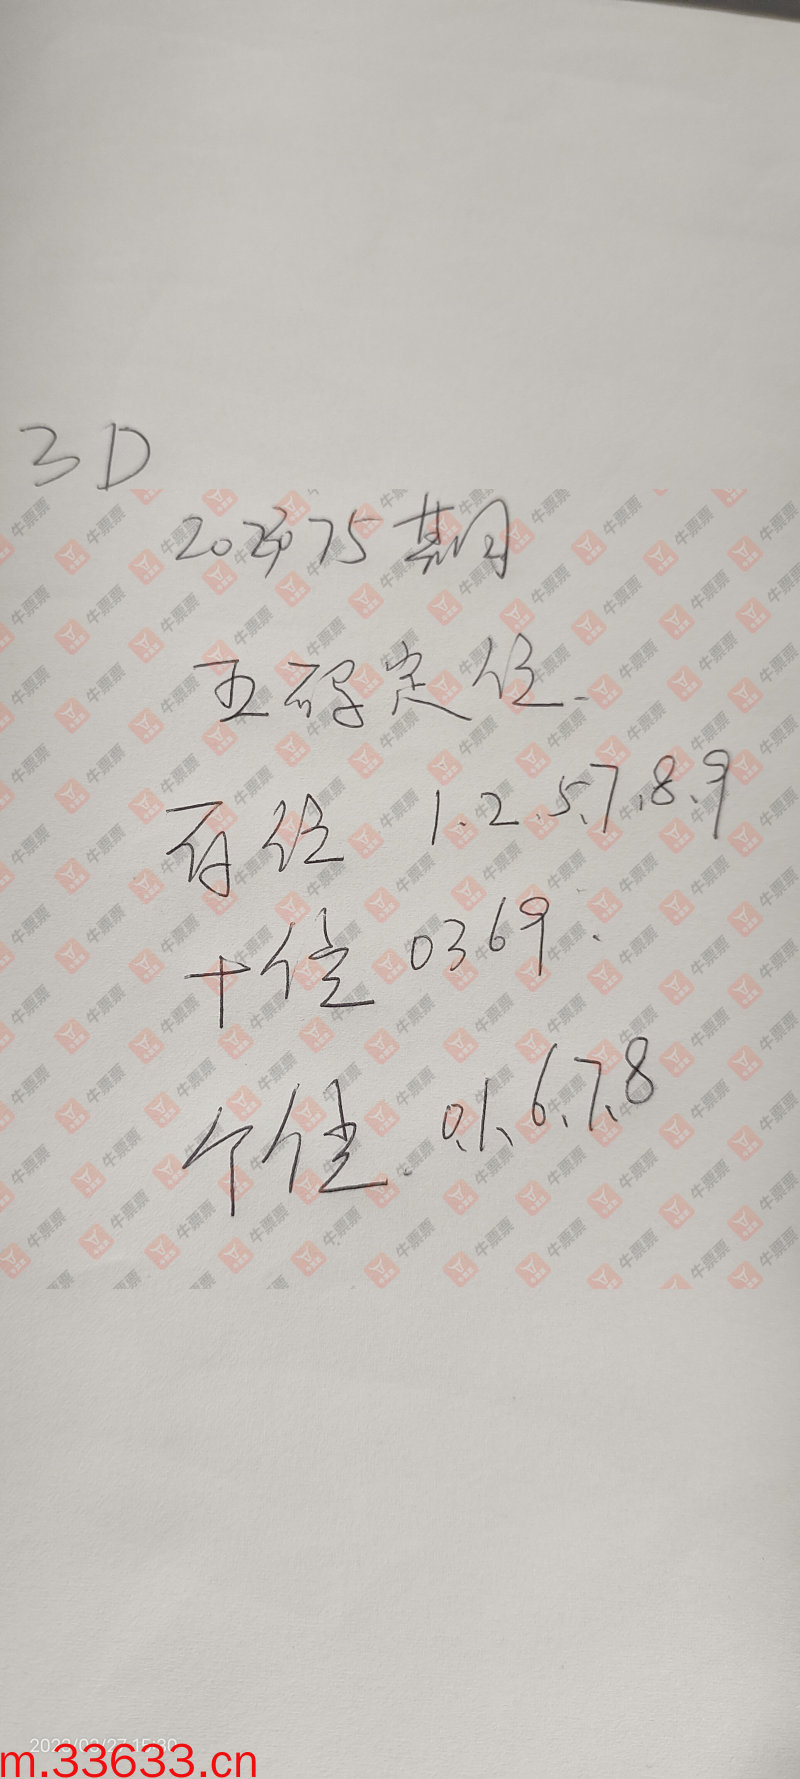 3D
202375期
五码定位.
百位 1.2.5.7.8.9
十位 0369.
个位. 0.1、6.7.8
牛票票
m.33633.cn